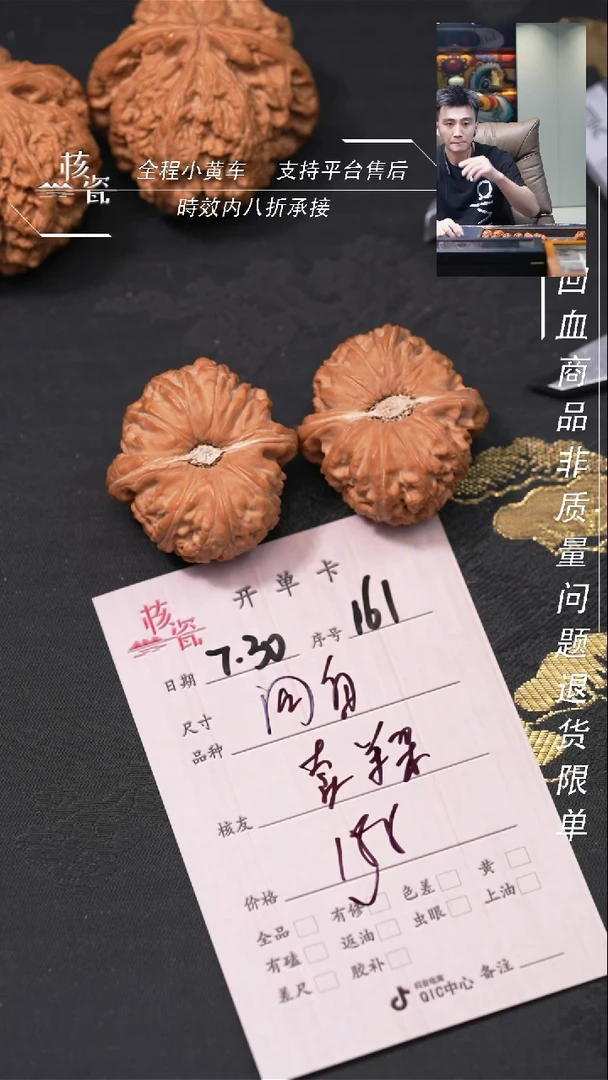 核瓷
全程小黄车 支持平台售后
時效内八折承接
回血商品非质量问题退货限单
核瓷
开单卡
日期 7.30 序号 161
尺寸
品种
核友
价格
全品 有修 色差 黄
有磕 返油 虫眼 上油
差尺 胶补
抖音电商
QIC中心 备注